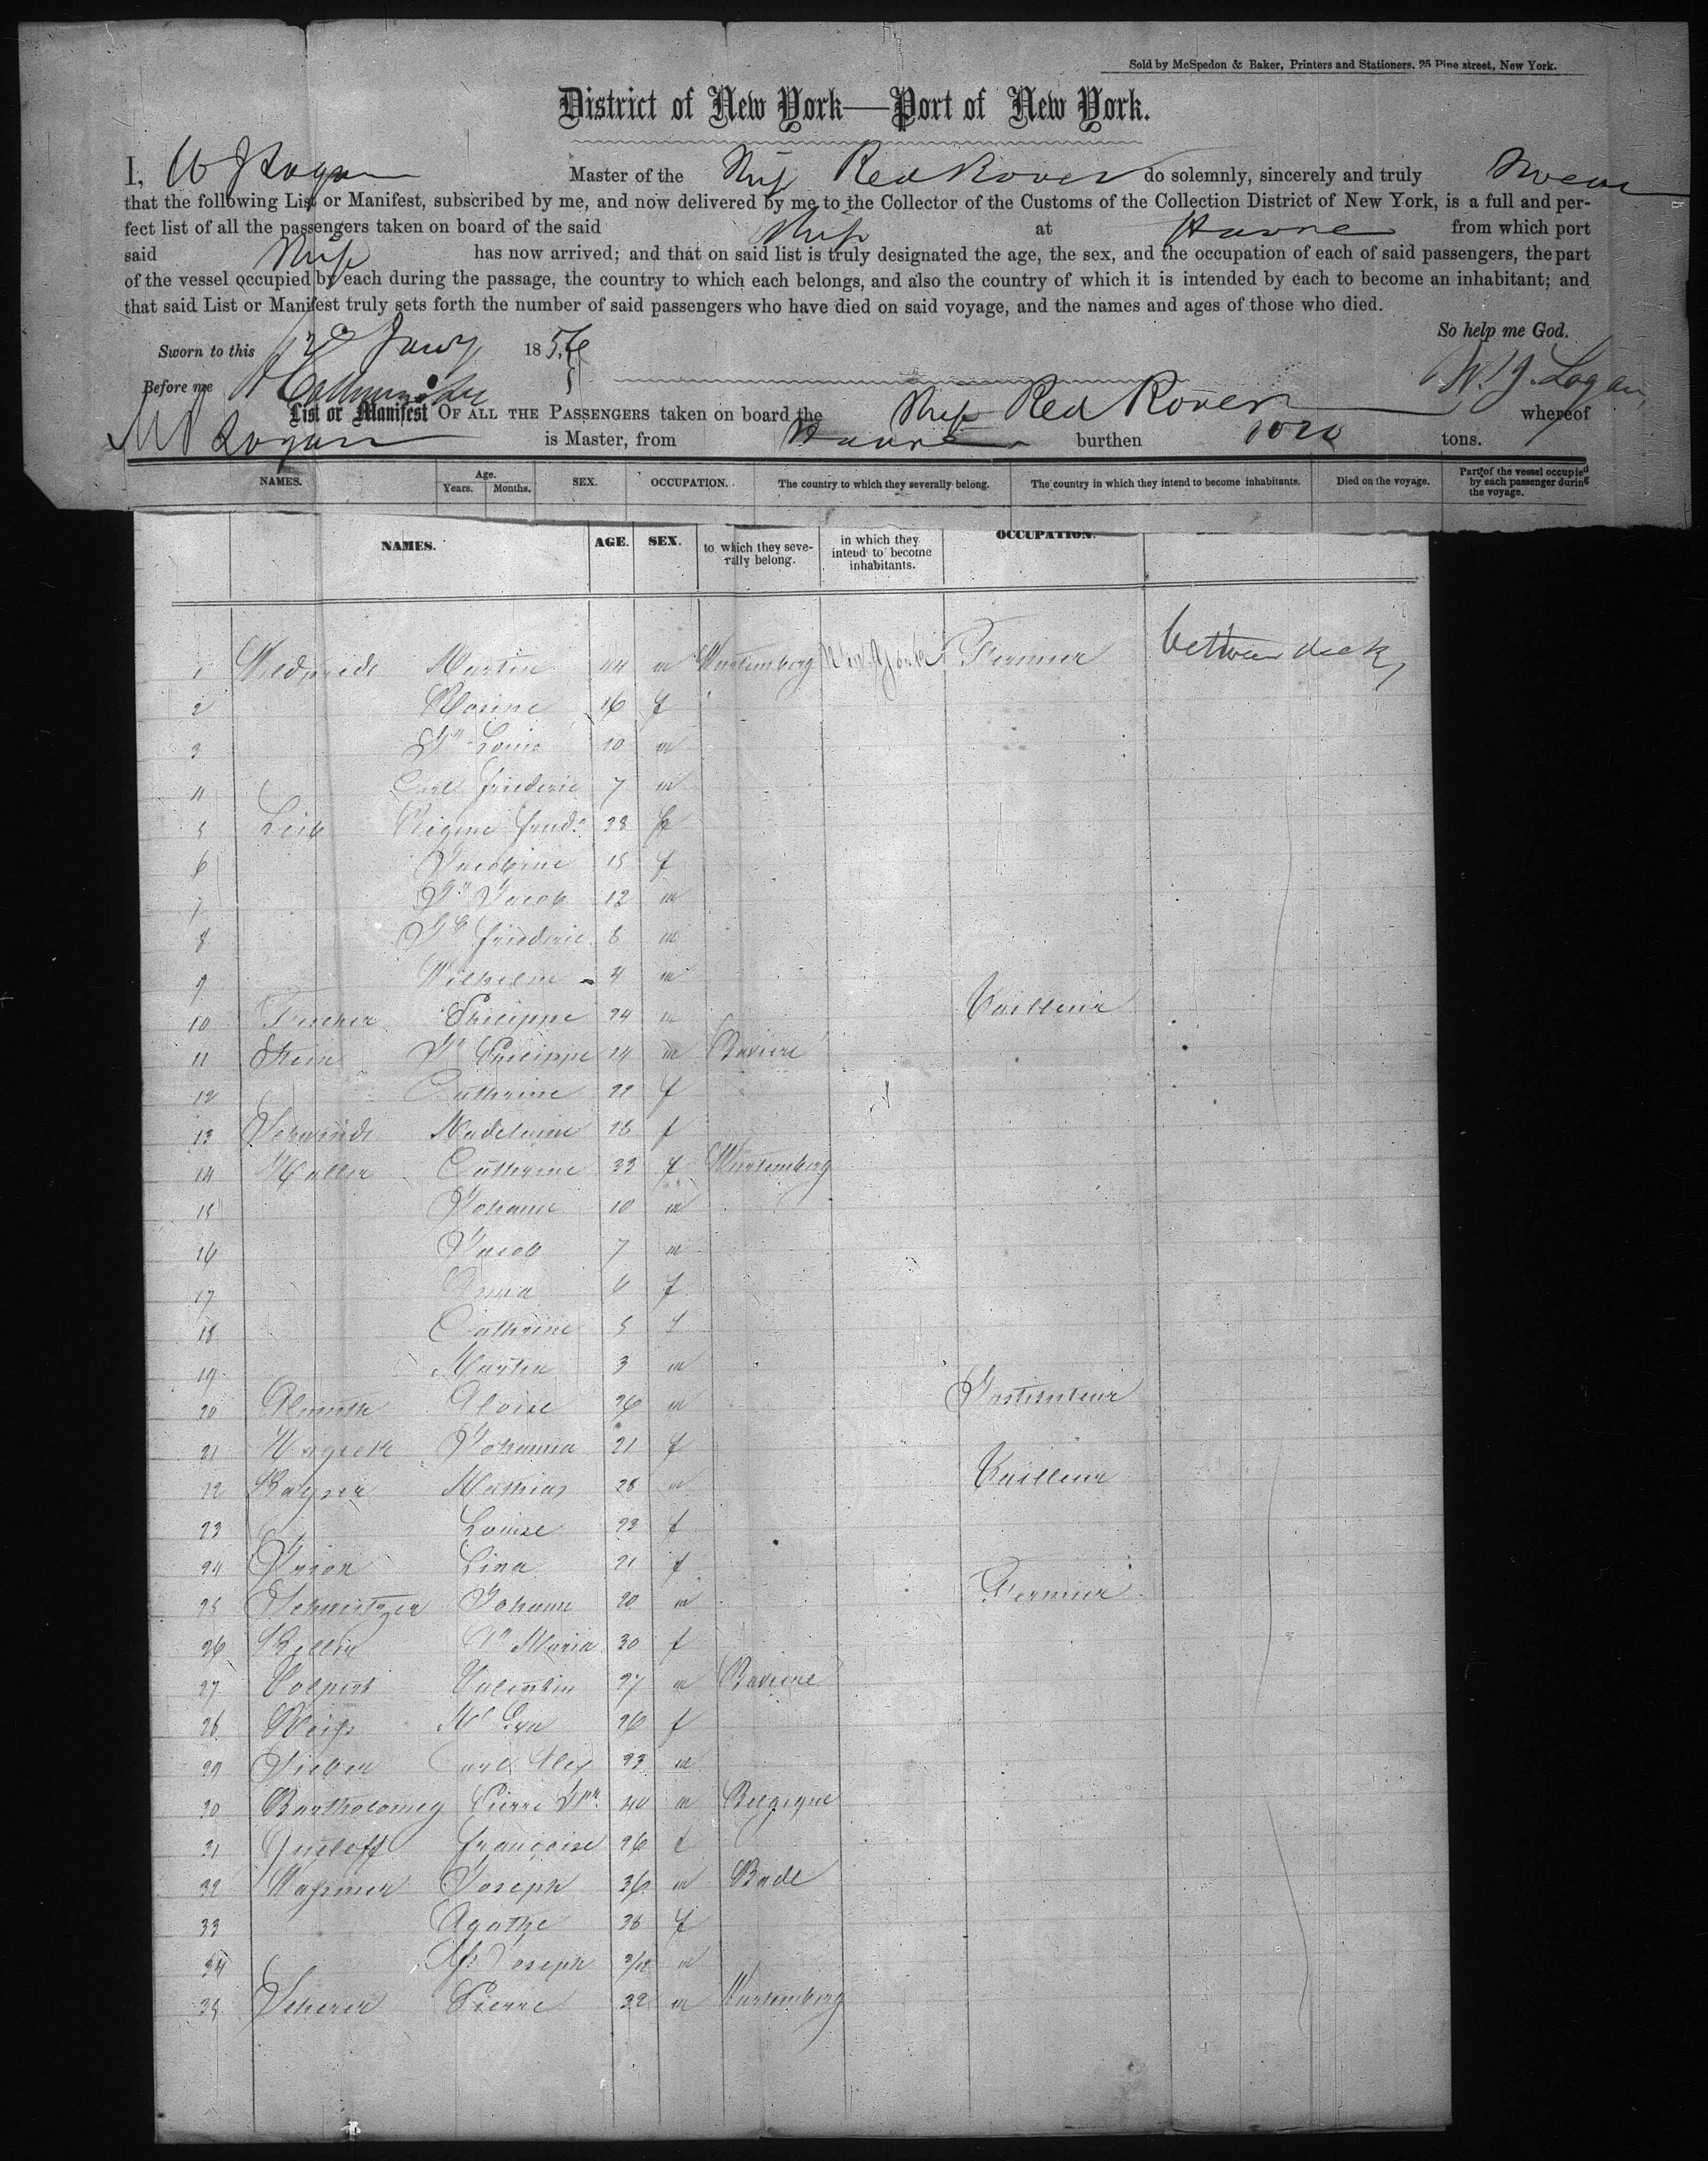 Sold by McSpedon & Baker, Printers and Stationers, 25 Pine street, New York.
District of New York—Port of New York.
I, W J Logan Master of the Ship Red Rover do solemnly, sincerely and truly Swear
that the following List or Manifest, subscribed by me, and now delivered by me to the Collector of the Customs of the Collection District of New York, is a full and per-
fect list of all the passengers taken on board of the said Ship at Havre from which port
said Ship has now arrived; and that on said list is truly designated the age, the sex, and the occupation of each of said passengers, the part
of the vessel occupied by each during the passage, the country to which each belongs, and also the country of which it is intended by each to become an inhabitant; and
that said List or Manifest truly sets forth the number of said passengers who have died on said voyage, and the names and ages of those who died.
So help me God.
Sworn to this Jany 1856
Before me W. J. Logan
List or Manifest OF ALL THE PASSENGERS taken on board the Ship Red Rover whereof
Logan is Master, from Havre burthen tons.
NAMES. Age. Years. Months. SEX. OCCUPATION. The country to which they severally belong. The country in which they intend to become inhabitants. Died on the voyage. Part of the vessel occupied by each passenger during the voyage.
NAMES. AGE. SEX. to which they seve-rally belong. in which they intend to become inhabitants. OCCUPATION.
1 Martin 44 m Wurtemberg New York Fermier between deck
2 Rosine 16 f
3 Louis 10 m
4 Carl Friederic 7 m
5 Leib Regine 28
6 Jacobine 15 f
7 Jn Jacob 12 m
8 Friederic 8 m
9 Wilhelm 4 m
10 Philippe 24 m Tailleur
11 Stein Philippe 24 m Baviere
12 Cathrine 22 f
13 Madeleine 28 f
14 Muller Catherine 33 f Wurtemberg
15 Johann 10 m
16 Jacob 7 m
17 Anna 6 f
18 Cathrine 5 f
19 Martin 3 m
20 Aloise 26 m Instituteur
21 Johanna 21 f
22 Kayser Mathias 28 m Tailleur
23 Louise 23 f
24 Lina 21 f
25 Schweitzer Johann 20 m Fermier
26 Keller Maria 30 f
27 Volpert Valentin 27 m Baviere
28 Weiss Eva 26 f
29 Sieber Carl Alex 23 m
30 Bartholomey Pierre 40 m Belgique
31 Françoise 26 f
32 Joseph 36 m Bade
33 Agathe 36 f
34 Joseph m
35 Scherer Pierre 32 m Wurtemberg